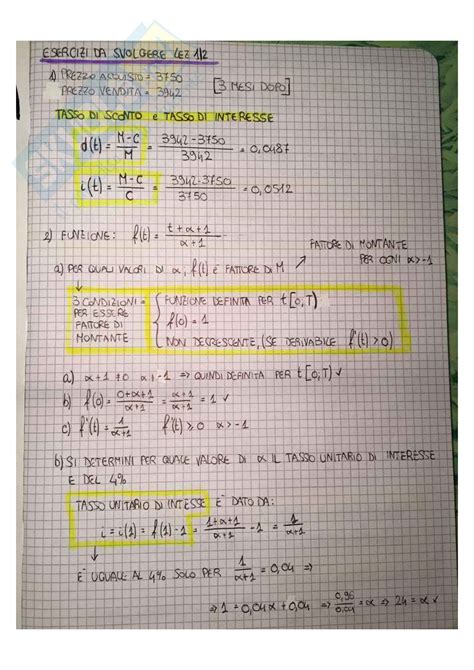 ESERCIZI DA SVOLGERE LEZ 1/2
1) PREZZO ACQUISTO = 3750
PREZZO VENDITA = 3942 [3 MESI DOPO]
TASSO DI SCONTO e TASSO DI INTERESSE
d(t) = M-C/M = 3942-3750/3942 = 0,0487
i(t) = M-C/C = 3942-3750/3750 = 0,0512
2) FUNZIONE: f(t) = t+α+1/α+1
FATTORE DI MONTANTE
PER OGNI α>-1
a) PER QUALI VALORI DI α, f(t) È FATTORE DI M
3 CONDIZIONI =
PER ESSERE
FATTORE DI
MONTANTE
FUNZIONE DEFINITA PER t[0,T)
f(0) = 1
NON DECRESCENTE, (SE DERIVABILE f'(t) > 0)
a) α+1 ≠ 0 α ≠ -1 ⇒ QUINDI DEFINITA PER t[0,T) ✓
b) f(0) = 0+α+1/α+1 = α+1/α+1 = 1 ✓
c) f'(t) = 1/α+1 f'(t) ≥ 0 α > -1
b) SI DETERMINI PER QUALE VALORE DI α IL TASSO UNITARIO DI INTERESSE
E DEL 4%
TASSO UNITARIO DI INTESSE È DATO DA:
i = i(1) = f(1)-1 = 1+α+1/α+1 - 1 = 1/α+1
È UGUALE AL 4% SOLO PER 1/α+1 = 0,04 ⇒
⇒ 1 = 0,04α + 0,04 ⇒ 0,96/0,04 = α ⇒ 24 = α ✓